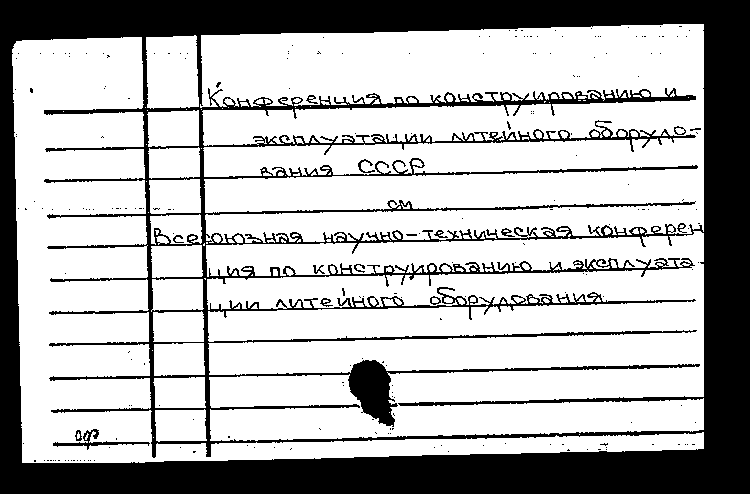 Конференция по конструированию и
эксплуатации литейного оборудо-
вания СССР
см
Всесоюзная научно-техническая конферен
ция по конструированию и эксплуата-
ции литейного оборудования